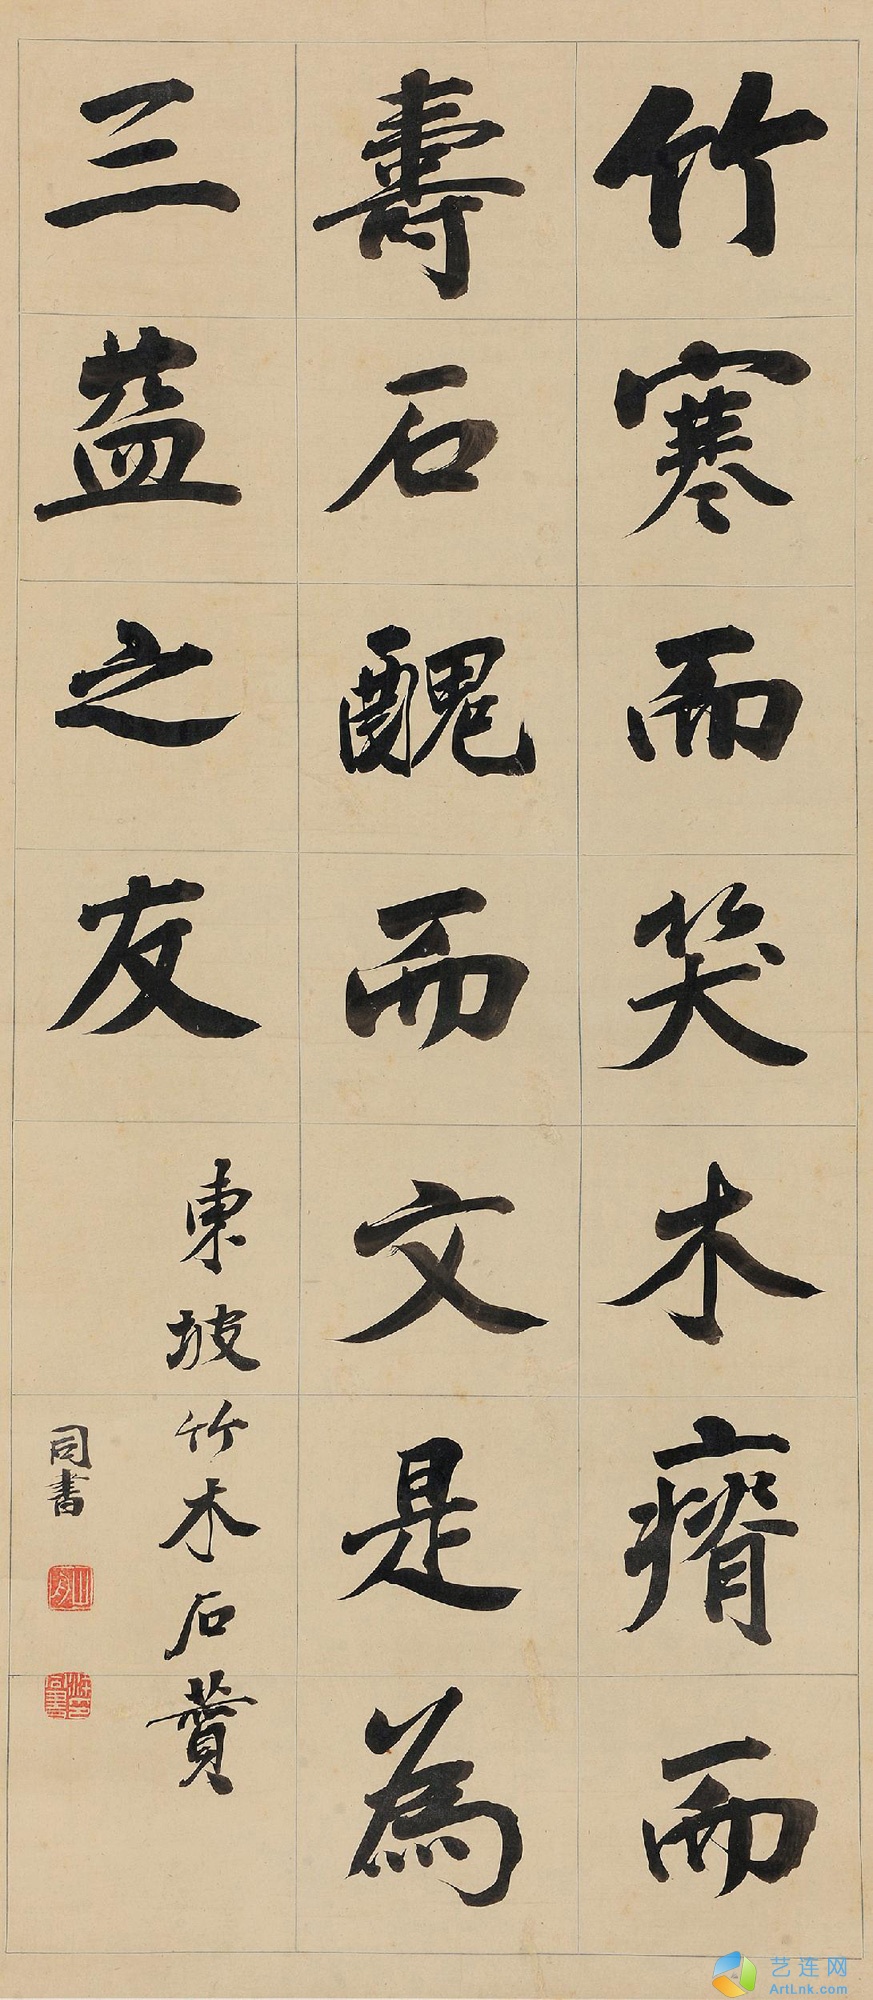 竹寒而笑木瘠而
壽石醜而文是為
三益之友
東坡竹木石贊
同書
山舟
艺连网
ArtLnk.com